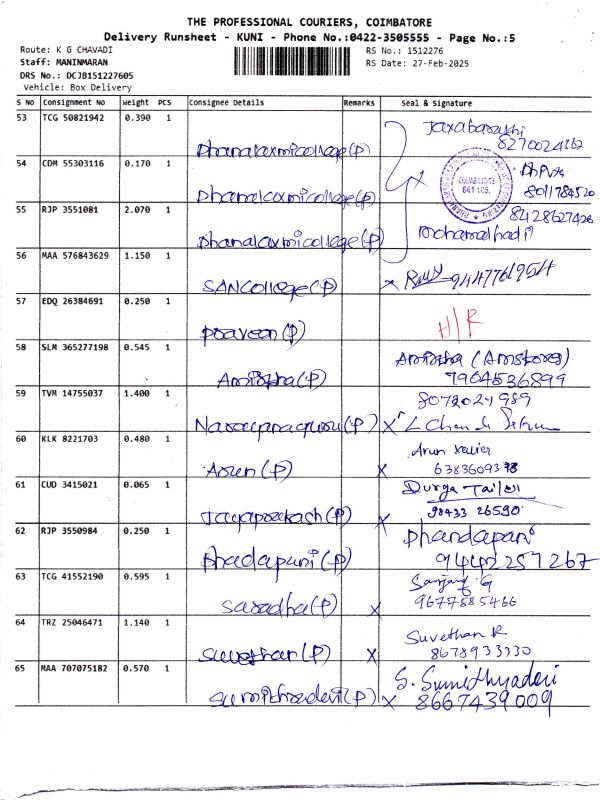 THE PROFESSIONAL COURIERS, COIMBATORE
Delivery Runsheet - KUNI - Phone No.:0422-3505555 - Page No.:5
Route: K G CHAVADI
RS No.: 1512276
Staff: MANINMARAN
RS Date: 27-Feb-2025
DRS No.: DCJB151227605
Vehicle: Box Delivery
S No Consignment No Weight PCS Consignee Details Remarks Seal & Signature
53 TCG 50821942 0.390 1
Dhanalaxmicollege(P)
54 CDM 55303116 0.170 1
COIMBATORE
641 105.
Dhanalaxmicollege(P)
55 RJP 3551081 2.070 1
8428627426
Dhanalaxmicollege(P) mohamalhadi
56 MAA 576843629 1.150 1
SANCollege(P) x 9447761954
57 EDQ 26384691 0.250 1
H/R
Praveen(P)
58 SLM 365277198 0.545 1
Amirtha (Amstores)
Amirtha(P) 7904536899
59 TVM 14755037 1.400 1
8072024989
(P) x
60 KLK 8221703 0.480 1
Arun xavier
Arun(P) x 6383609398
61 CUD 3415021 0.065 1
Durga Tailor
Jayaprakash(P) x 98433 26590
62 RJP 3550984 0.250 1
Dhandapani
(P) 9442257267
63 TCG 41552190 0.595 1
Saradha(P) x 9677585466
64 TRZ 25046471 1.140 1
Suvethan R
Suvethan(P) x 8678933330
65 MAA 707075182 0.570 1
S. Sumidhyadevi
Sumithradevi(P) x 8667439009